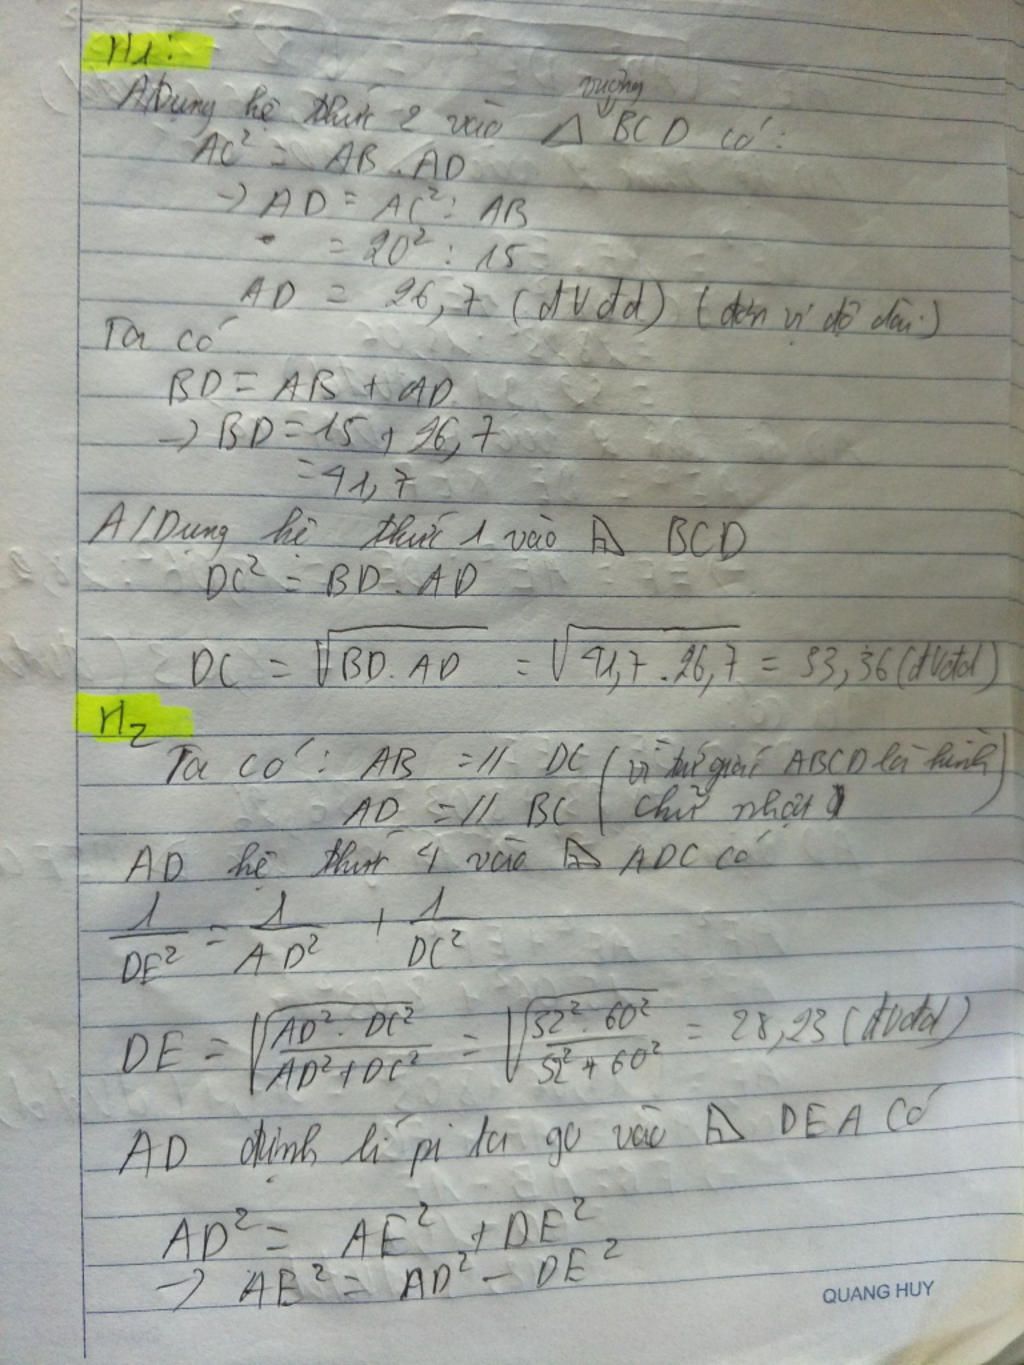 H1:
A/Dụng hệ thức 2 vào △ vuông BCD có:
AC² = AB . AD
→ AD = AC² : AB
= 20² : 15
AD = 26,7 (đvđd) (đơn vị độ dài)
Ta có
BD = AB + AD
→ BD = 15 + 26,7
= 41,7
A/Dụng hệ thức 1 vào ⊿ BCD
DC² = BD . AD
DC = √BD . AD = √41,7 . 26,7 = 33,36 (đvđd)
H2
Ta có: AB = // DC (vì tứ giác ABCD là hình
AD = // BC chữ nhật)
AD hệ thức 4 vào ⊿ ADC có
1/DE² = 1/AD² + 1/DC²
DE = √(AD² . DC²)/(AD² + DC²) = √(32² . 60²)/(32² + 60²) = 28,23 (đvđd)
AD định lí pi ta go vào ⊿ DEA có
AD² = AE² + DE²
→ AE² = AD² - DE²
QUANG HUY